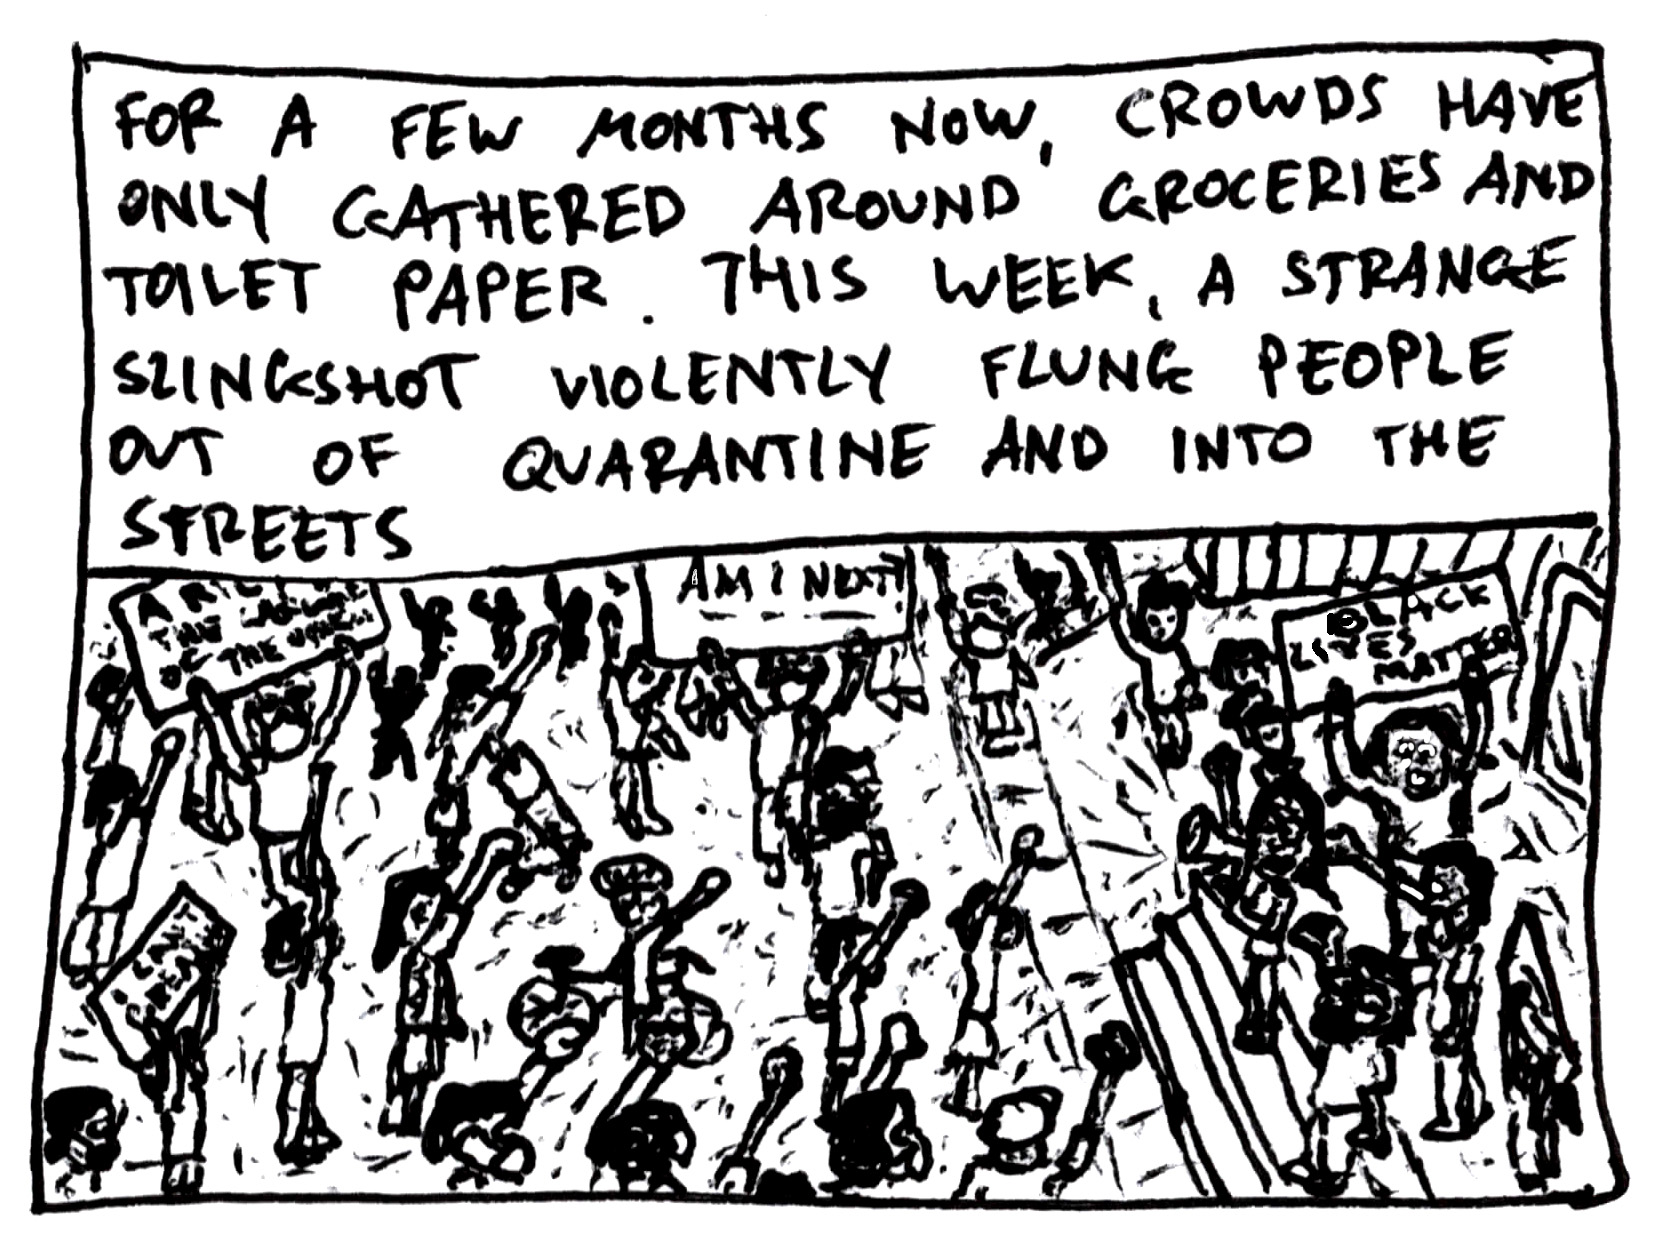 FOR A FEW MONTHS NOW, CROWDS HAVE
ONLY GATHERED AROUND GROCERIES AND
TOILET PAPER. THIS WEEK, A STRANGE
SLINGSHOT VIOLENTLY FLUNG PEOPLE
OUT OF QUARANTINE AND INTO THE
STREETS
A RIOT
THE LANGUAGE
OF THE
AM I NEXT?
BLACK
LIVES
MATTER
I CAN'T
BREATHE